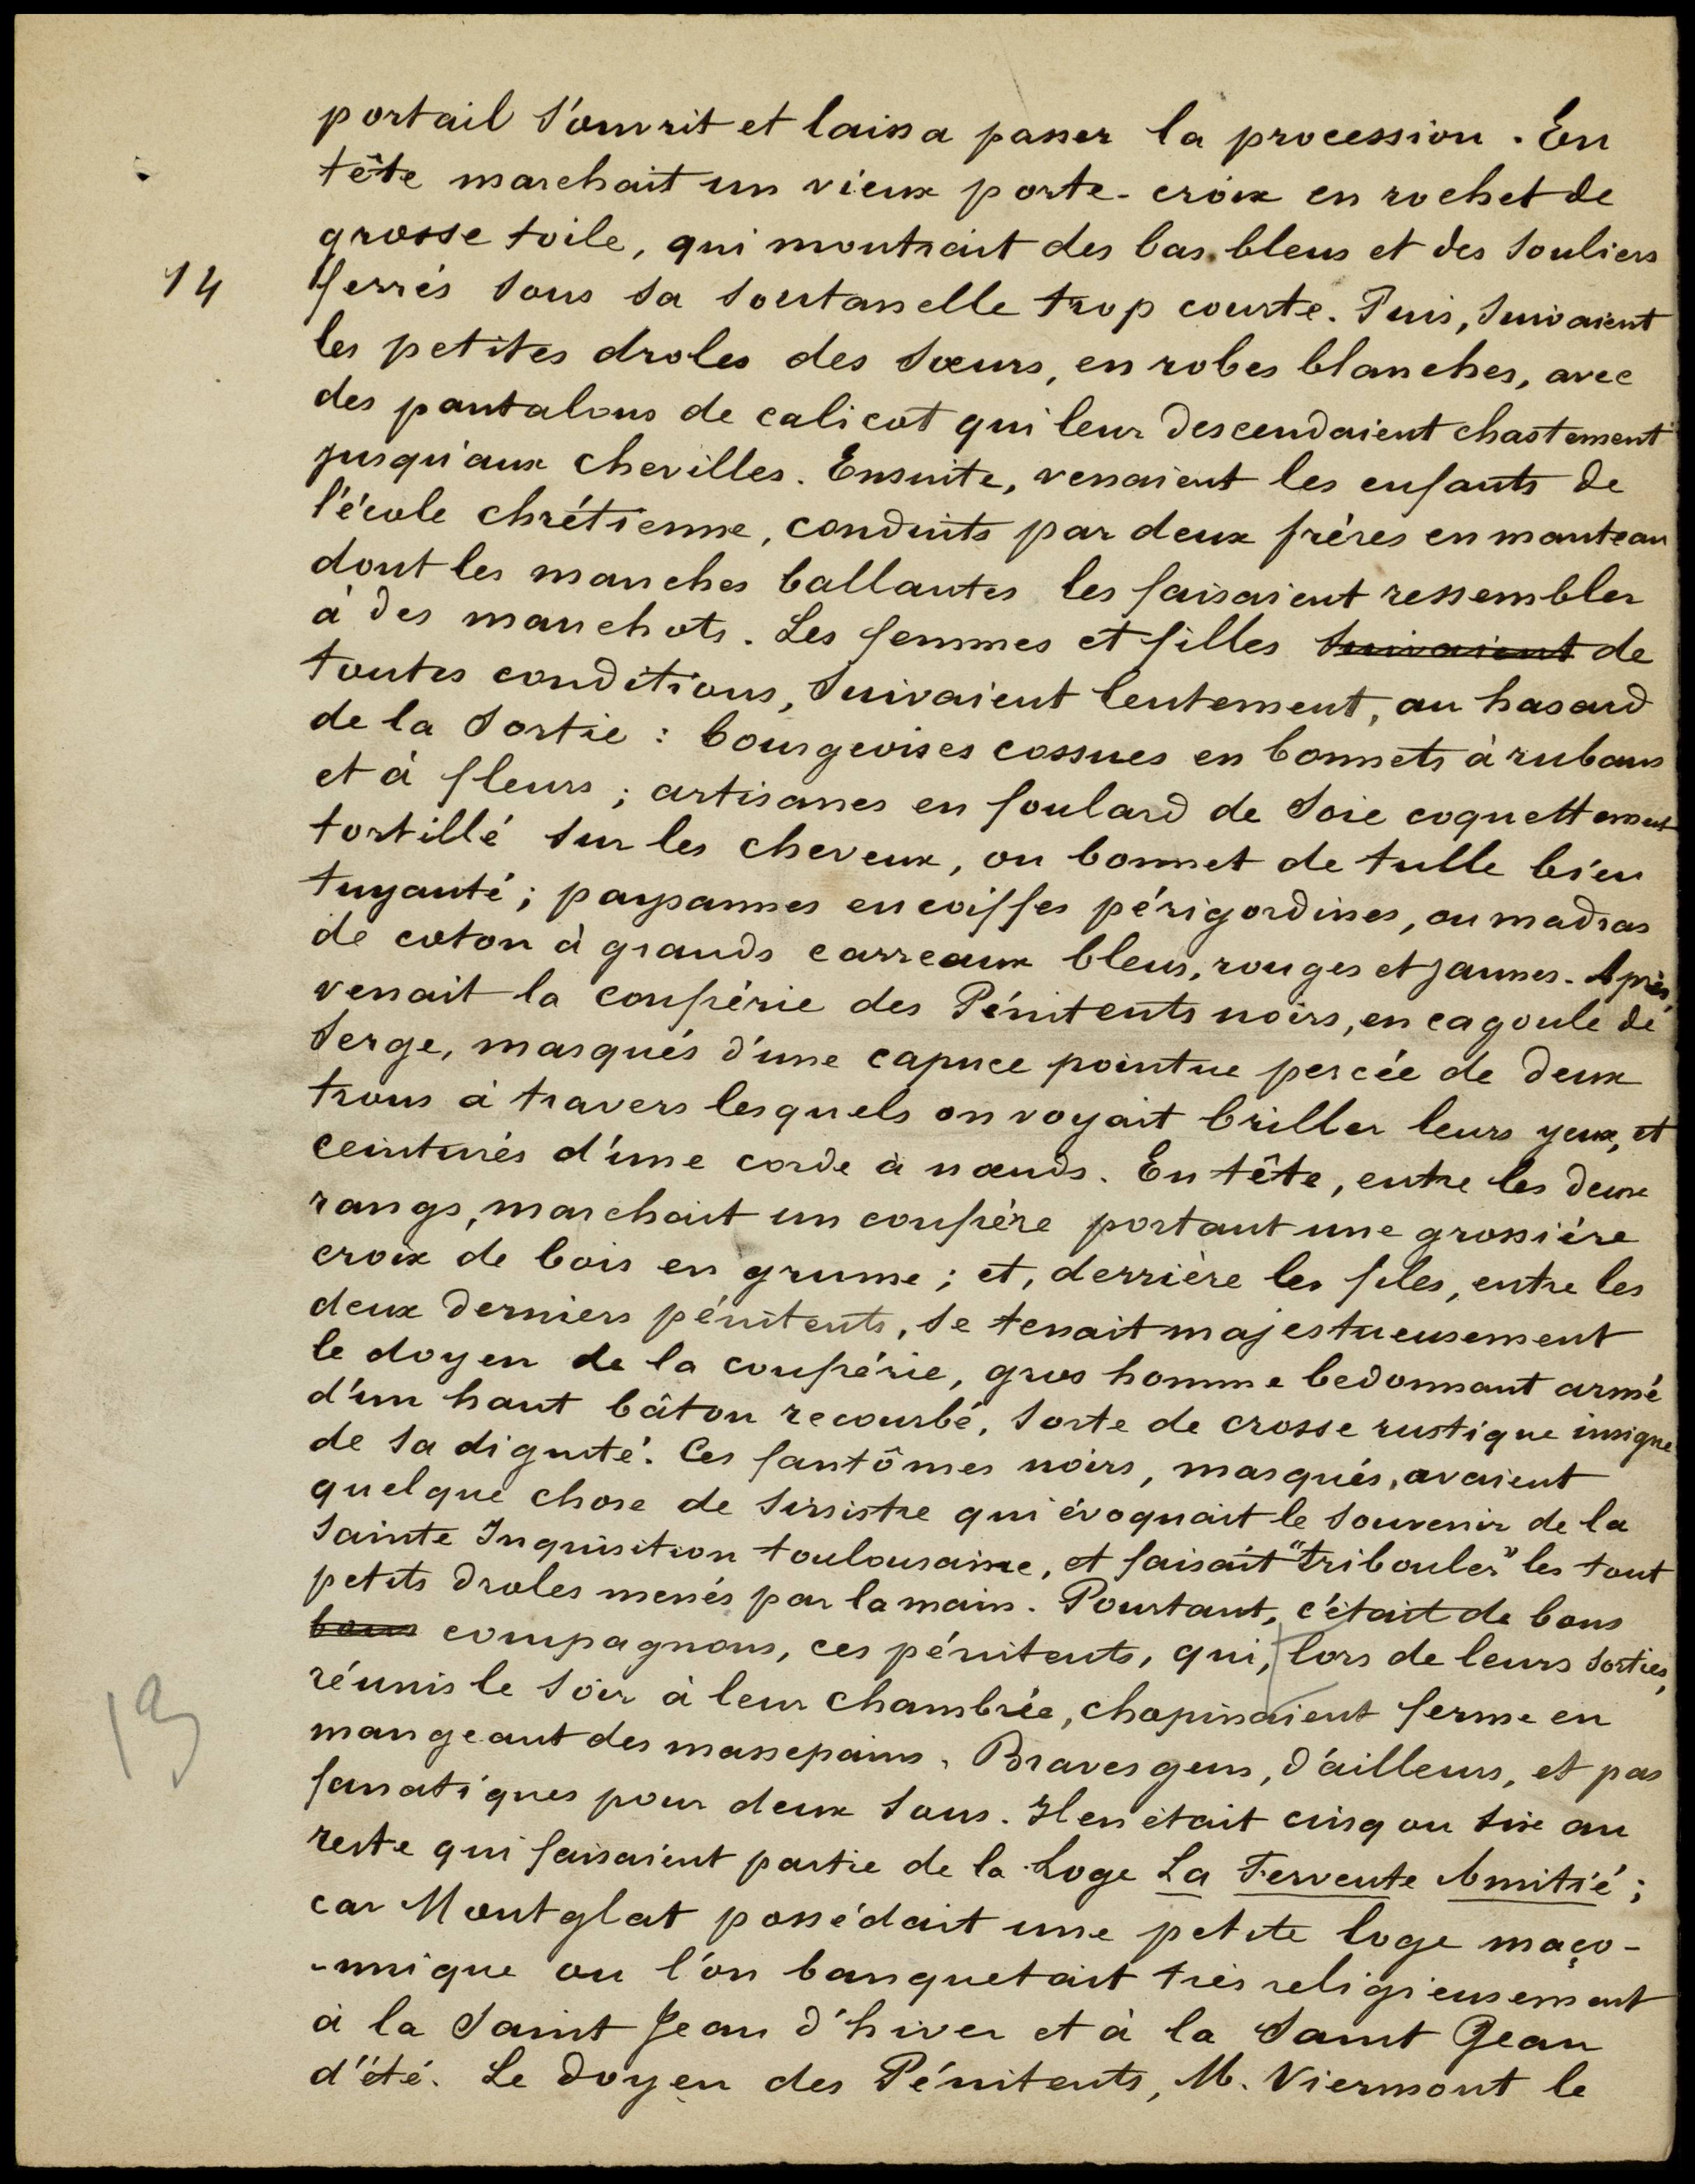 portail s'ouvrit et laissa passer la procession. En
tête marchait un vieux porte-croix en rochet de
grosse toile, qui montrait des bas bleus et des souliers
14
ferrés sous sa soutanelle trop courte. Puis, suivaient
les petites droles des sœurs, en robes blanches, avec
des pantalons de calicot qui leur descendaient chastement
jusqu'aux chevilles. Ensuite, venaient les enfants de
l'école chrétienne, conduits par deux frères en manteau
dont les manches ballantes les faisaient ressembler
à des manchots. Les femmes et filles suivaient de
toutes conditions, suivaient lentement, au hasard
de la sortie : bourgeoises cossues en bonnets à rubans
et à fleurs ; artisanes en foulard de soie coquettement
tortillé sur les cheveux, ou bonnet de tulle bien
tuyauté ; paysannes en coiffes périgordines, ou madras
de coton à grands carreaux bleus, rouges et jaunes. Après,
venait la confrérie des Pénitents noirs, en cagoule de
serge, masqués d'une capuce pointue percée de deux
trous à travers lesquels on voyait briller leurs yeux, et
ceinturés d'une corde à nœuds. En tête, entre les deux
rangs, marchait un confrère portant une grossière
croix de bois en grume ; et, derrière les files, entre les
deux derniers pénitents, se tenait majestueusement
le doyen de la confrérie, gros homme bedonnant armé
d'un haut bâton recourbé, sorte de crosse rustique insigne
de sa dignité. Ces fantômes noirs, masqués, avaient
quelque chose de sinistre qui évoquait le souvenir de la
Sainte Inquisition toulousaine, et faisait "tribouler" les tout
petits droles menés par la main. Pourtant, c'était de bons
bons compagnons, ces pénitents, qui, lors de leurs sorties,
réunis le soir à leur chambrée, chopinaient ferme en
19
mangeant des massepains. Braves gens, d'ailleurs, et pas
fanatiques pour deux sous. Il en était cinq ou six au
reste qui faisaient partie de la Loge La Fervente Amitié ;
car Montglat possédait une petite loge maço-
-nnique ou l'on banquetait très religieusement
à la Saint Jean d'hiver et à la Saint Jean
d'été. Le doyen des Pénitents, M. Viermont le